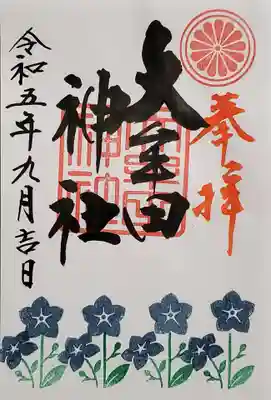 奉拝
大牟田
神社
令和五年九月吉日